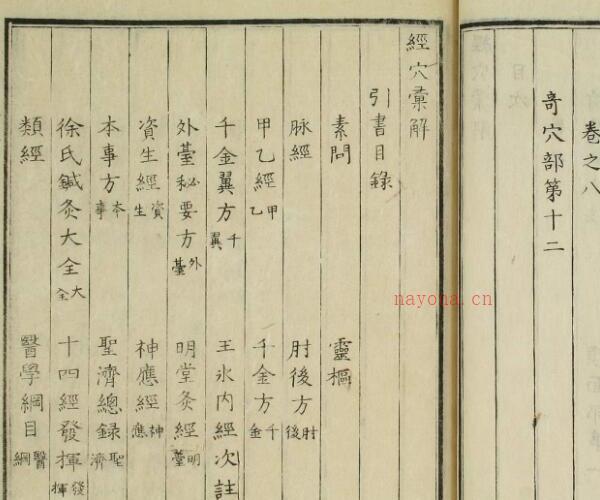 卷之八
竒穴部第十二
經穴彙解
引書目錄
素問 靈樞
脉經 肘後方 肘後
甲乙經 甲乙 千金方 千金
千金翼方 千翼 王氷内經次註
外臺秘要方 外臺 明堂灸經 明堂
資生經 資生 神應經 神應
本事方 本事 聖濟總錄 聖濟
徐氏鍼灸大全 大全 十四經發揮 發揮
類經 醫學綱目 醫綱
nayona.cn